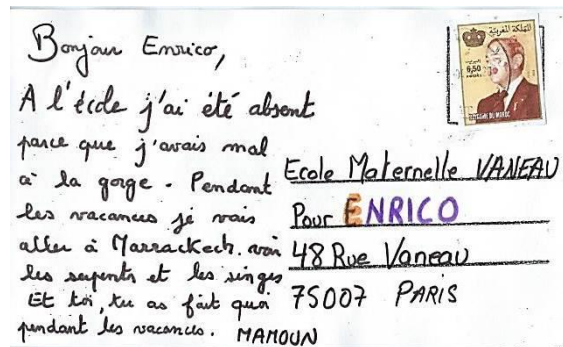 Bonjour Enrico,
A l'école j'ai été absent
parce que j'avais mal
à la gorge. Pendant
les vacances je vais
aller à Marrackech. voir
les serpents et les singes
Et toi, tu as fait quoi
pendant les vacances. MAMOUN
المملكة المغربية
6,50
ROYAUME DU MAROC
Ecole Maternelle VANEAU
Pour ENRICO
48 Rue Vaneau
75007 PARIS